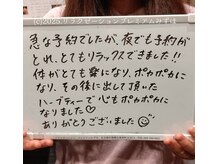 (c)2025 リラクゼーションプレミアムみずほ
急な予約でしたが、夜でも予約が
とれ、とてもリラックスできました!!
体がとても楽になり、ポカポカに
なり、その後に出して頂いた
ハーブティーで心もポカポカに
なりました♡
ありがとうございました